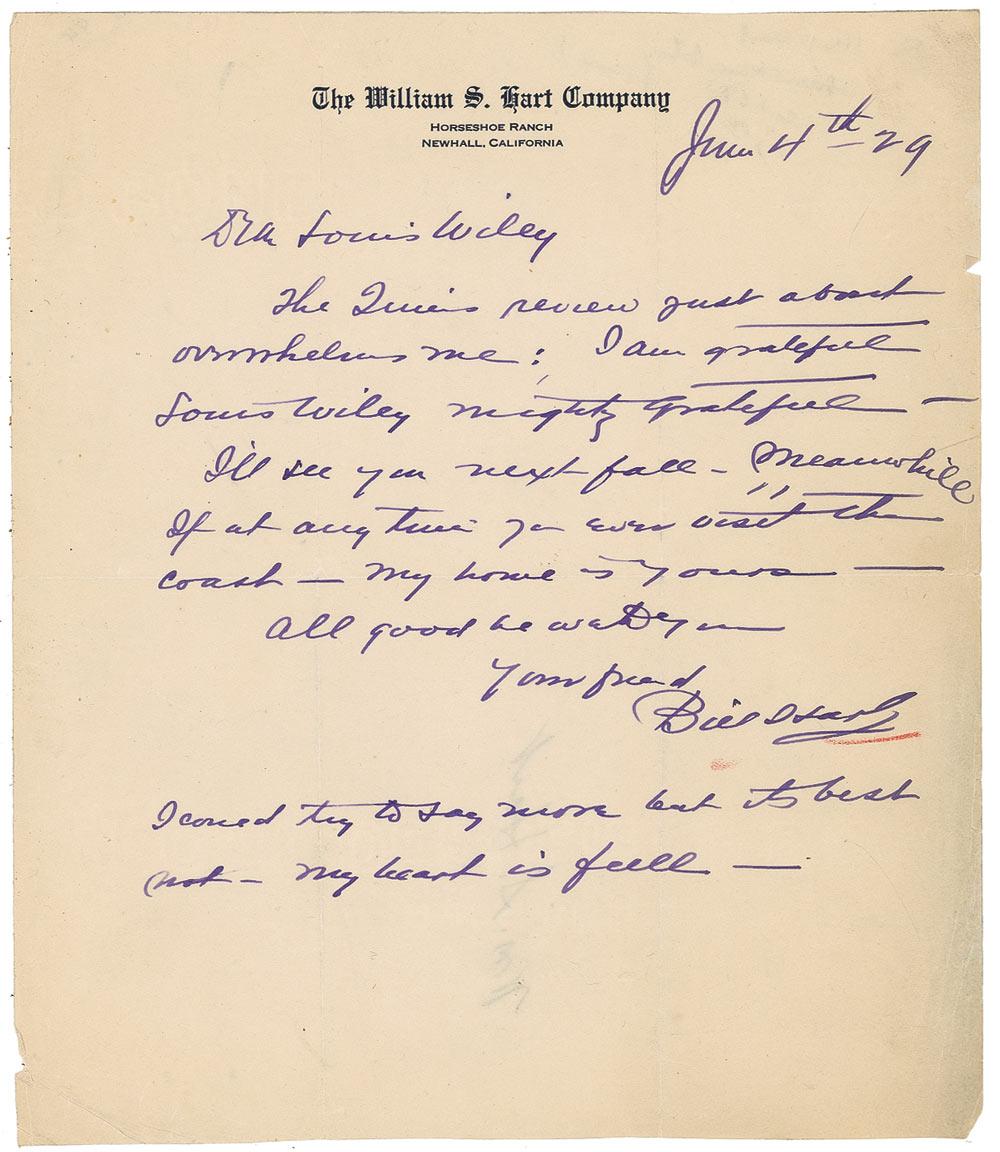 The William S. Hart Company
HORSESHOE RANCH
NEWHALL, CALIFORNIA
June 4th - 29
Dear Louis Wiley
The Times review just about
overwhelms me : I am grateful
Louis Wiley mighty grateful —
I'll see you next fall - Meanwhile
If at any time you ever visit the
coast — my home is yours —
All good be with you
Your friend
Bill Hart
I could try to say more but its best
not - my heart is full —